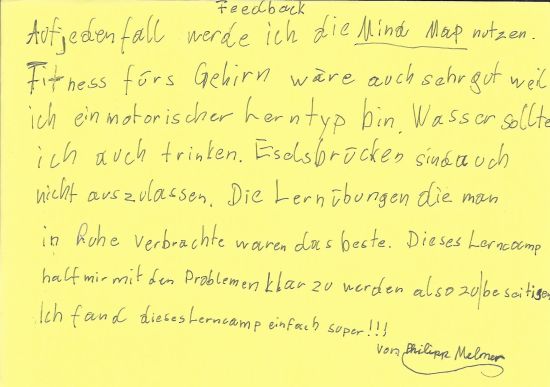 Feedback
Aufjedenfall werde ich die Mind Map nutzen.
Fitness fürs Gehirn wäre auch sehr gut weil
ich ein motorischer Lerntyp bin. Wasser sollte
ich auch trinken. Eselsbrücken sind auch
nicht auszulassen. Die Lernübungen die man
in Ruhe verbrachte waren das beste. Dieses Lerncamp
half mir mit den Problemen klar zu werden also zu beseitigen
Ich fand dieses Lerncamp einfach super!!!
von Philipp